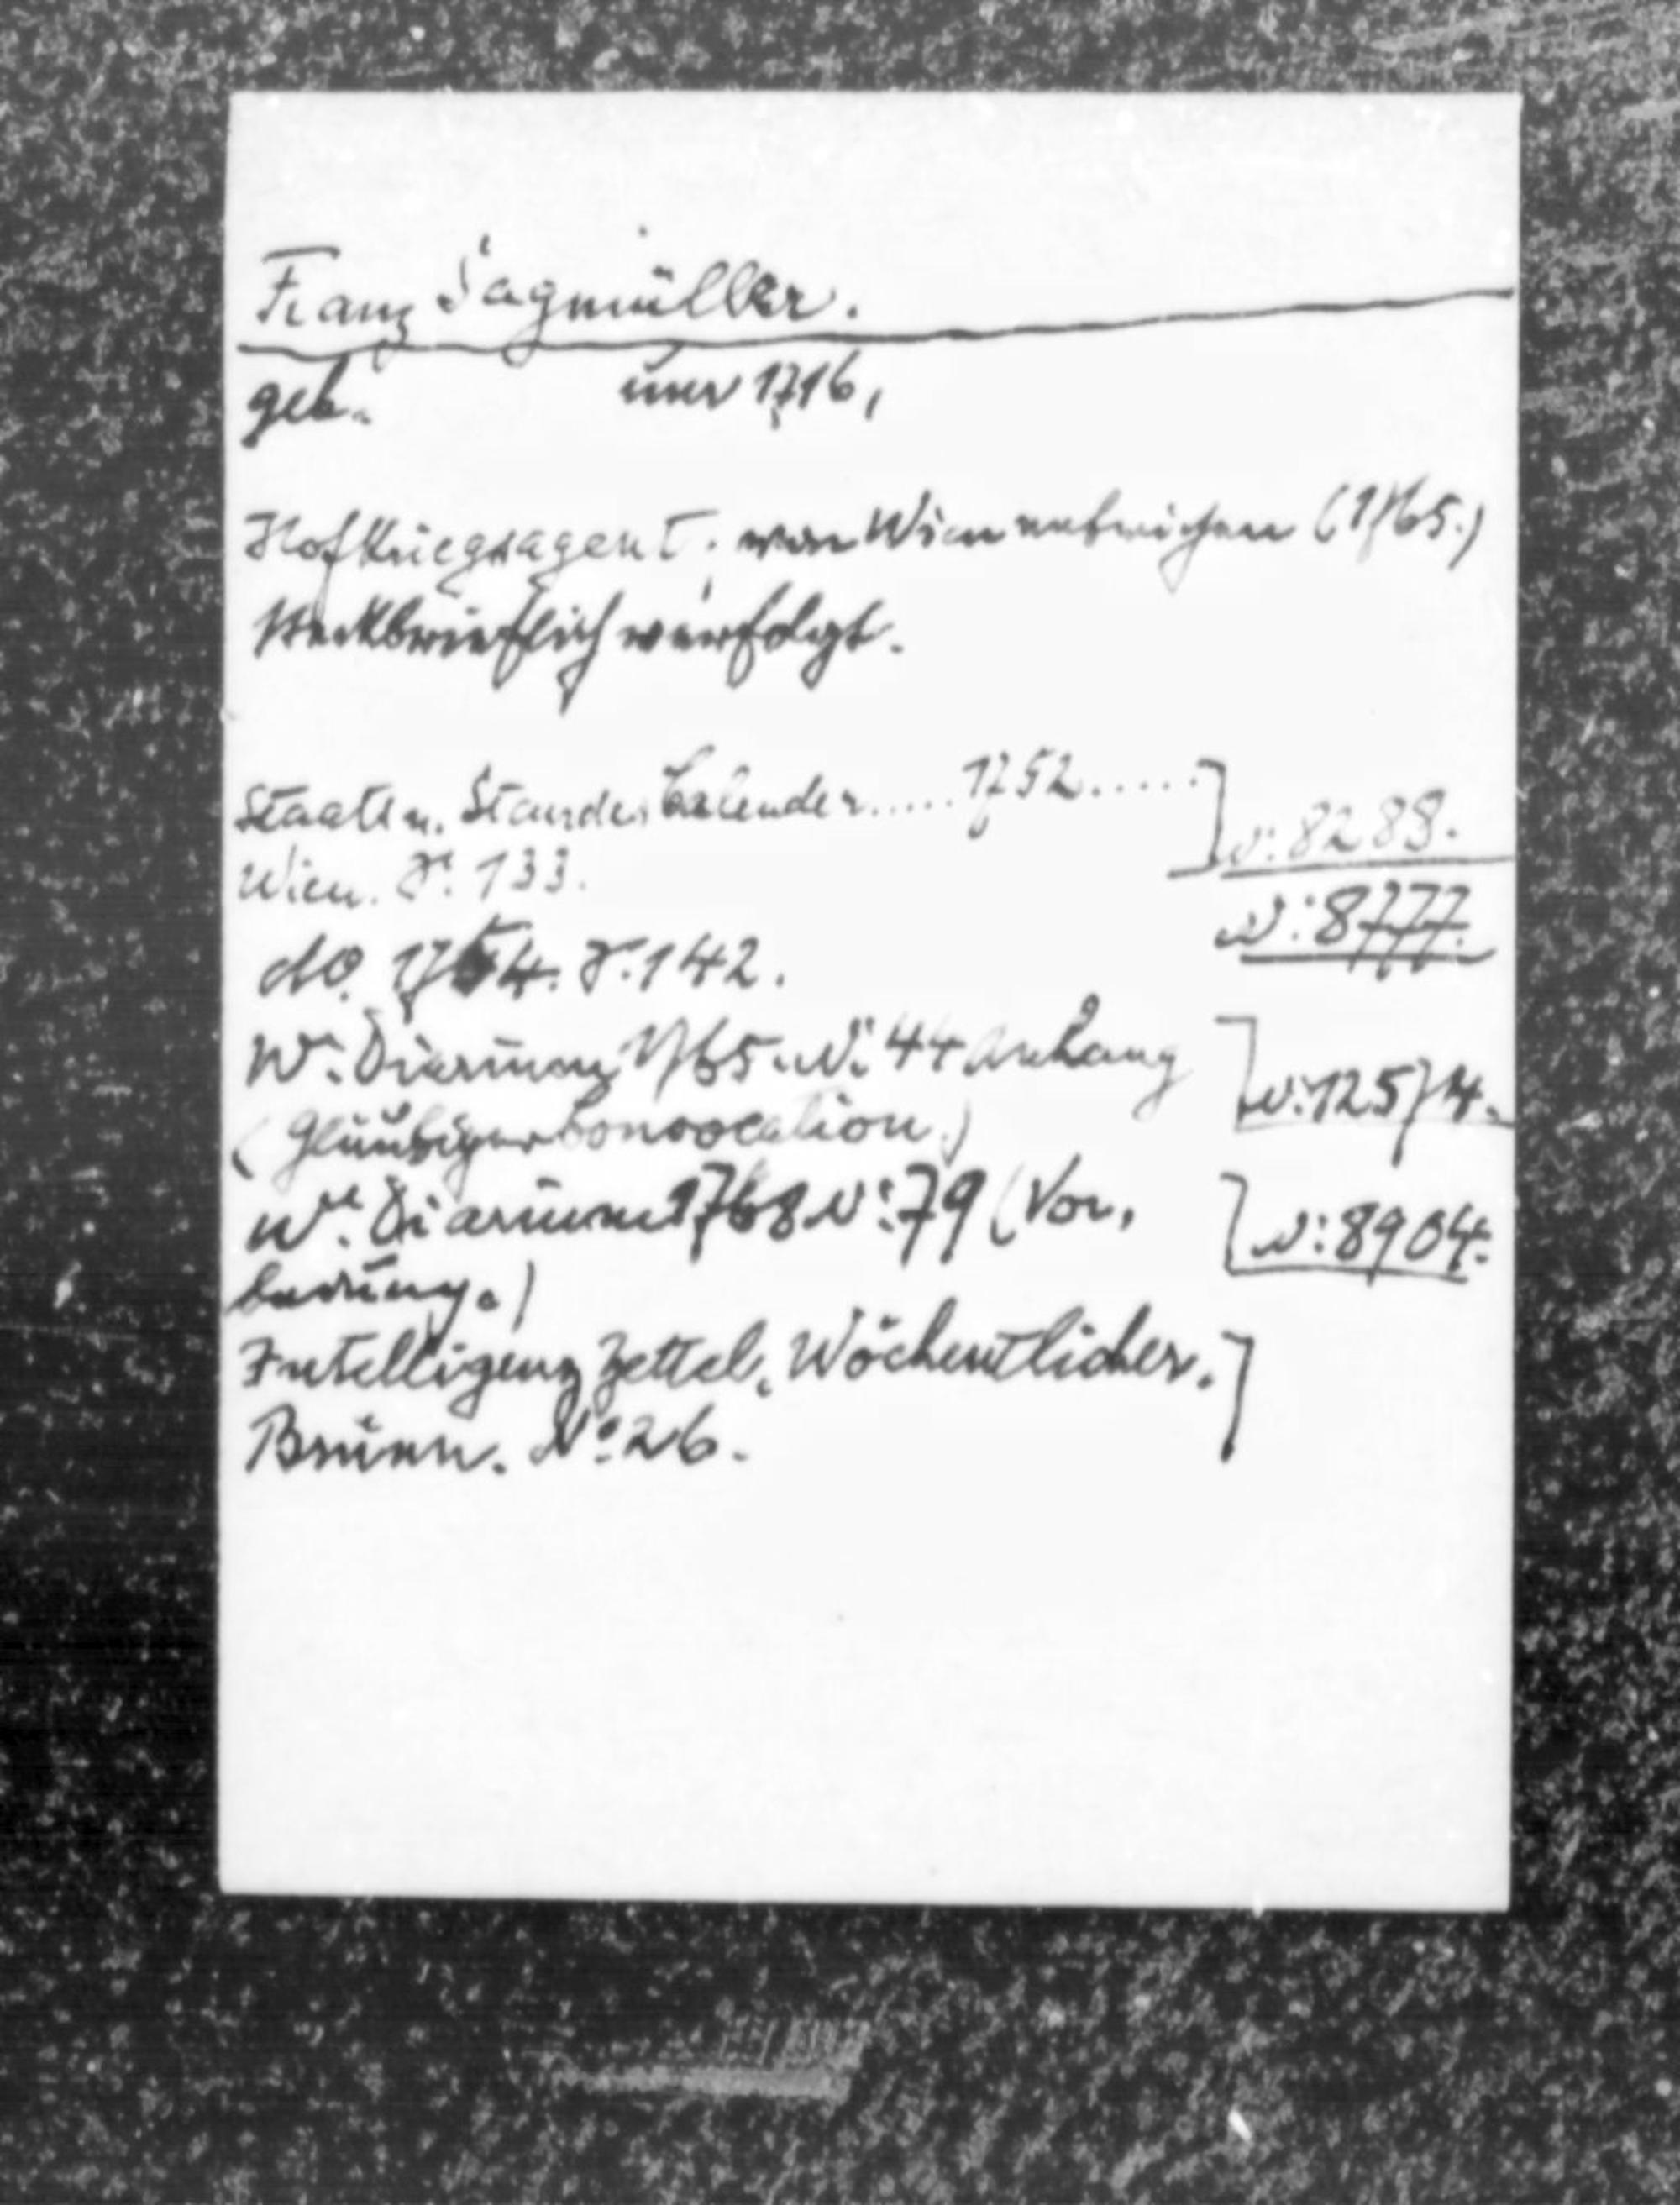 Franz Sagmüller.
geb. um 1716,
Hofkriegsagent, von Wien entwichen (1765.)
steckbrieflich verfolgt.
Staats u. Standes Calender.....1752.....
N: 8288.
Wien. S. 133.
N: 8777.
do. 1754. S. 142.
Wr. Diarium 1765. N: 44 Anhang
N: 12574.
(Gläubiger Convocation.)
Wr. Diarium 1768 N: 79 (Vor,
N: 8904.
ladung.)
Intelligenz Zettel, Wöchentlicher.
Brünn. No: 26.